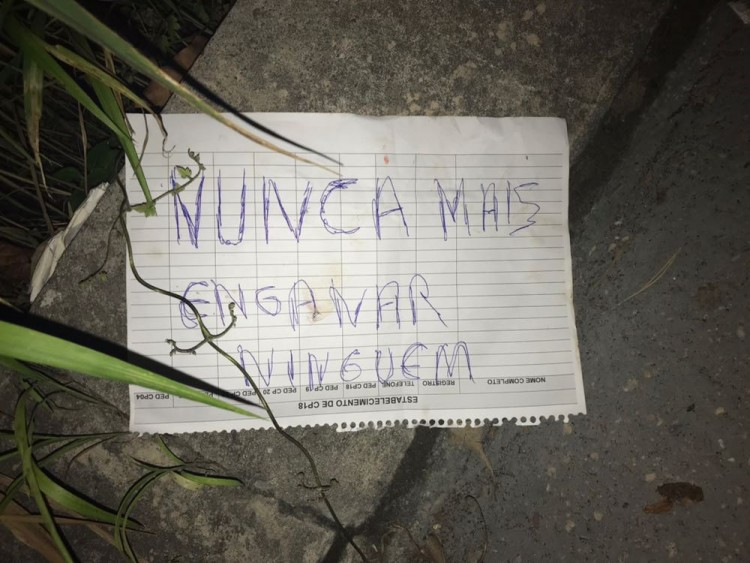 NUNCA MAIS
ENGANAR
NINGUEM
NOME COMPLETO REGISTRO TELEFONE PED CP18 PED CP19 PED CP 20 PED CP04
ESTABLECIMENTO DE CP18